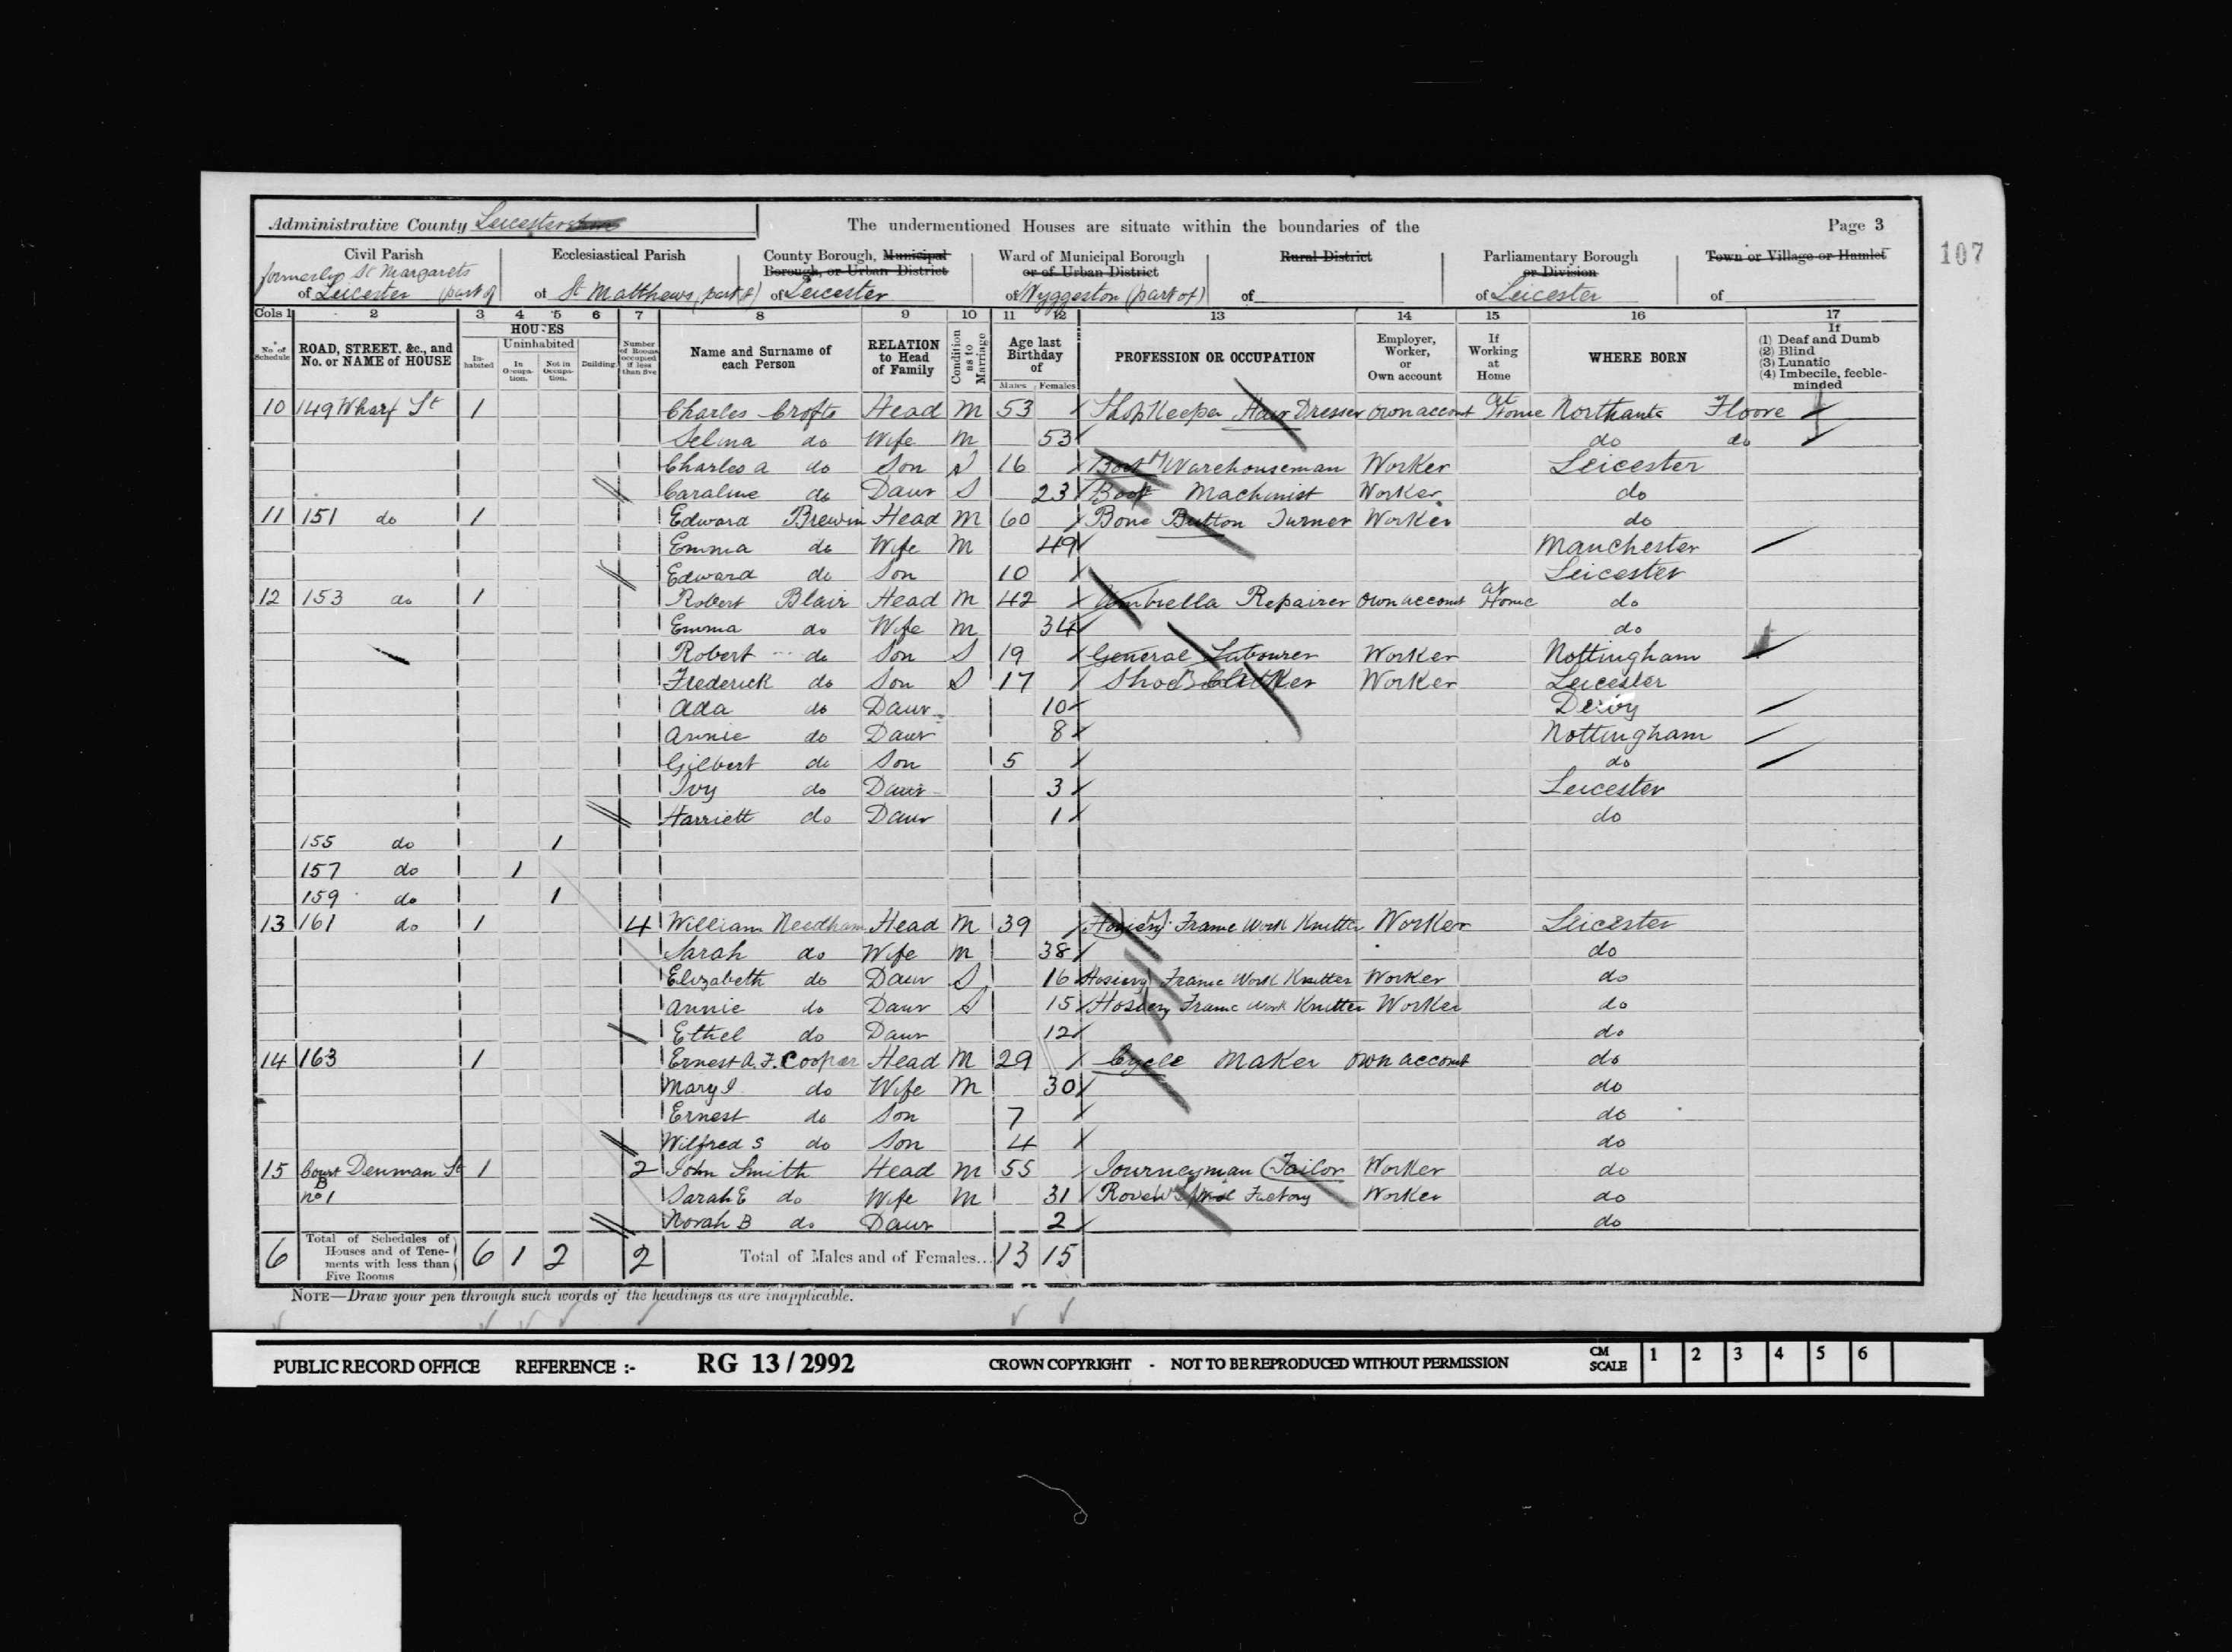 Administrative County Leicester
The undermentioned Houses are situate within the boundaries of the
Page 3
107
Civil Parish
formerly St Margarets
of Leicester (part of)
Ecclesiastical Parish
of St Matthews (part of)
County Borough, Municipal
Borough, or Urban District
of Leicester
Ward of Municipal Borough
or of Urban District
of Wyggeston (part of)
Rural District
of
Parliamentary Borough
or Division
of Leicester
Town or Village or Hamlet
of
Cols 1 2 3 4 5 6 7 8 9 10 11 12 13 14 15 16 17
No. of Schedule
ROAD, STREET, &c., and No. or NAME of HOUSE
HOUSES
Inhabited
Uninhabited
In Occupation.
Not in Occupation.
Building
Number of Rooms occupied if less than five
Name and Surname of each Person
RELATION to Head of Family
Condition as to Marriage
Age last Birthday of
Males Females
PROFESSION OR OCCUPATION
Employer, Worker, or Own account
If Working at Home
WHERE BORN
If
(1) Deaf and Dumb
(2) Blind
(3) Lunatic
(4) Imbecile, feeble-minded
10 149 Wharf St 1 Charles Crofts Head M 53 Shop Keeper Hair Dresser own account at Home Northants Floore
Selina do Wife M 53 do do
Charles A do Son S 16 Boot Warehouseman Worker Leicester
Caraline do Daur S 23 Boot Machinist Worker do
11 151 do 1 Edward Brewin Head M 60 Bone Button Turner Worker do
Emma do Wife M 49 Manchester
Edward do Son 10 Leicester
12 153 do 1 Robert Blair Head M 42 Umbrella Repairer own account at Home do
Emma do Wife M 34 do
Robert do Son S 19 General Labourer Worker Nottingham
Frederick do Son S 17 Shoe Worker Leicester
Ada do Daur 10 Derby
Annie do Daur 8 Nottingham
Gilbert do Son 5 do
Ivy do Daur 3 Leicester
Harriett do Daur 1 do
155 do 1
157 do 1
159 do 1
13 161 do 1 4 William Needham Head M 39 Hosiery Frame Work Knitter Worker Leicester
Sarah do Wife M 38 do
Elizabeth do Daur S 16 Hosiery Frame Work Knitter Worker do
Annie do Daur S 15 Hosiery Frame Work Knitter Worker do
Ethel do Daur 12 do
14 163 1 Ernest A. F. Cooper Head M 29 Cycle Maker own account do
Mary I do Wife M 30 do
Ernest do Son 7 do
Wilfred S do Son 4 do
15 Court Denman St 1 2 John Smith Head M 55 Journeyman Tailor Worker do
B
no 1 Sarah E do Wife M 31 Factory Worker do
Norah B do Daur 2 do
6 Total of Schedules of Houses and of Tenements with less than Five Rooms 6 1 2 2 Total of Males and of Females... 13 15
NOTE—Draw your pen through such words of the headings as are inapplicable.
PUBLIC RECORD OFFICE REFERENCE :- RG 13/2992 CROWN COPYRIGHT - NOT TO BE REPRODUCED WITHOUT PERMISSION CM SCALE 1 2 3 4 5 6